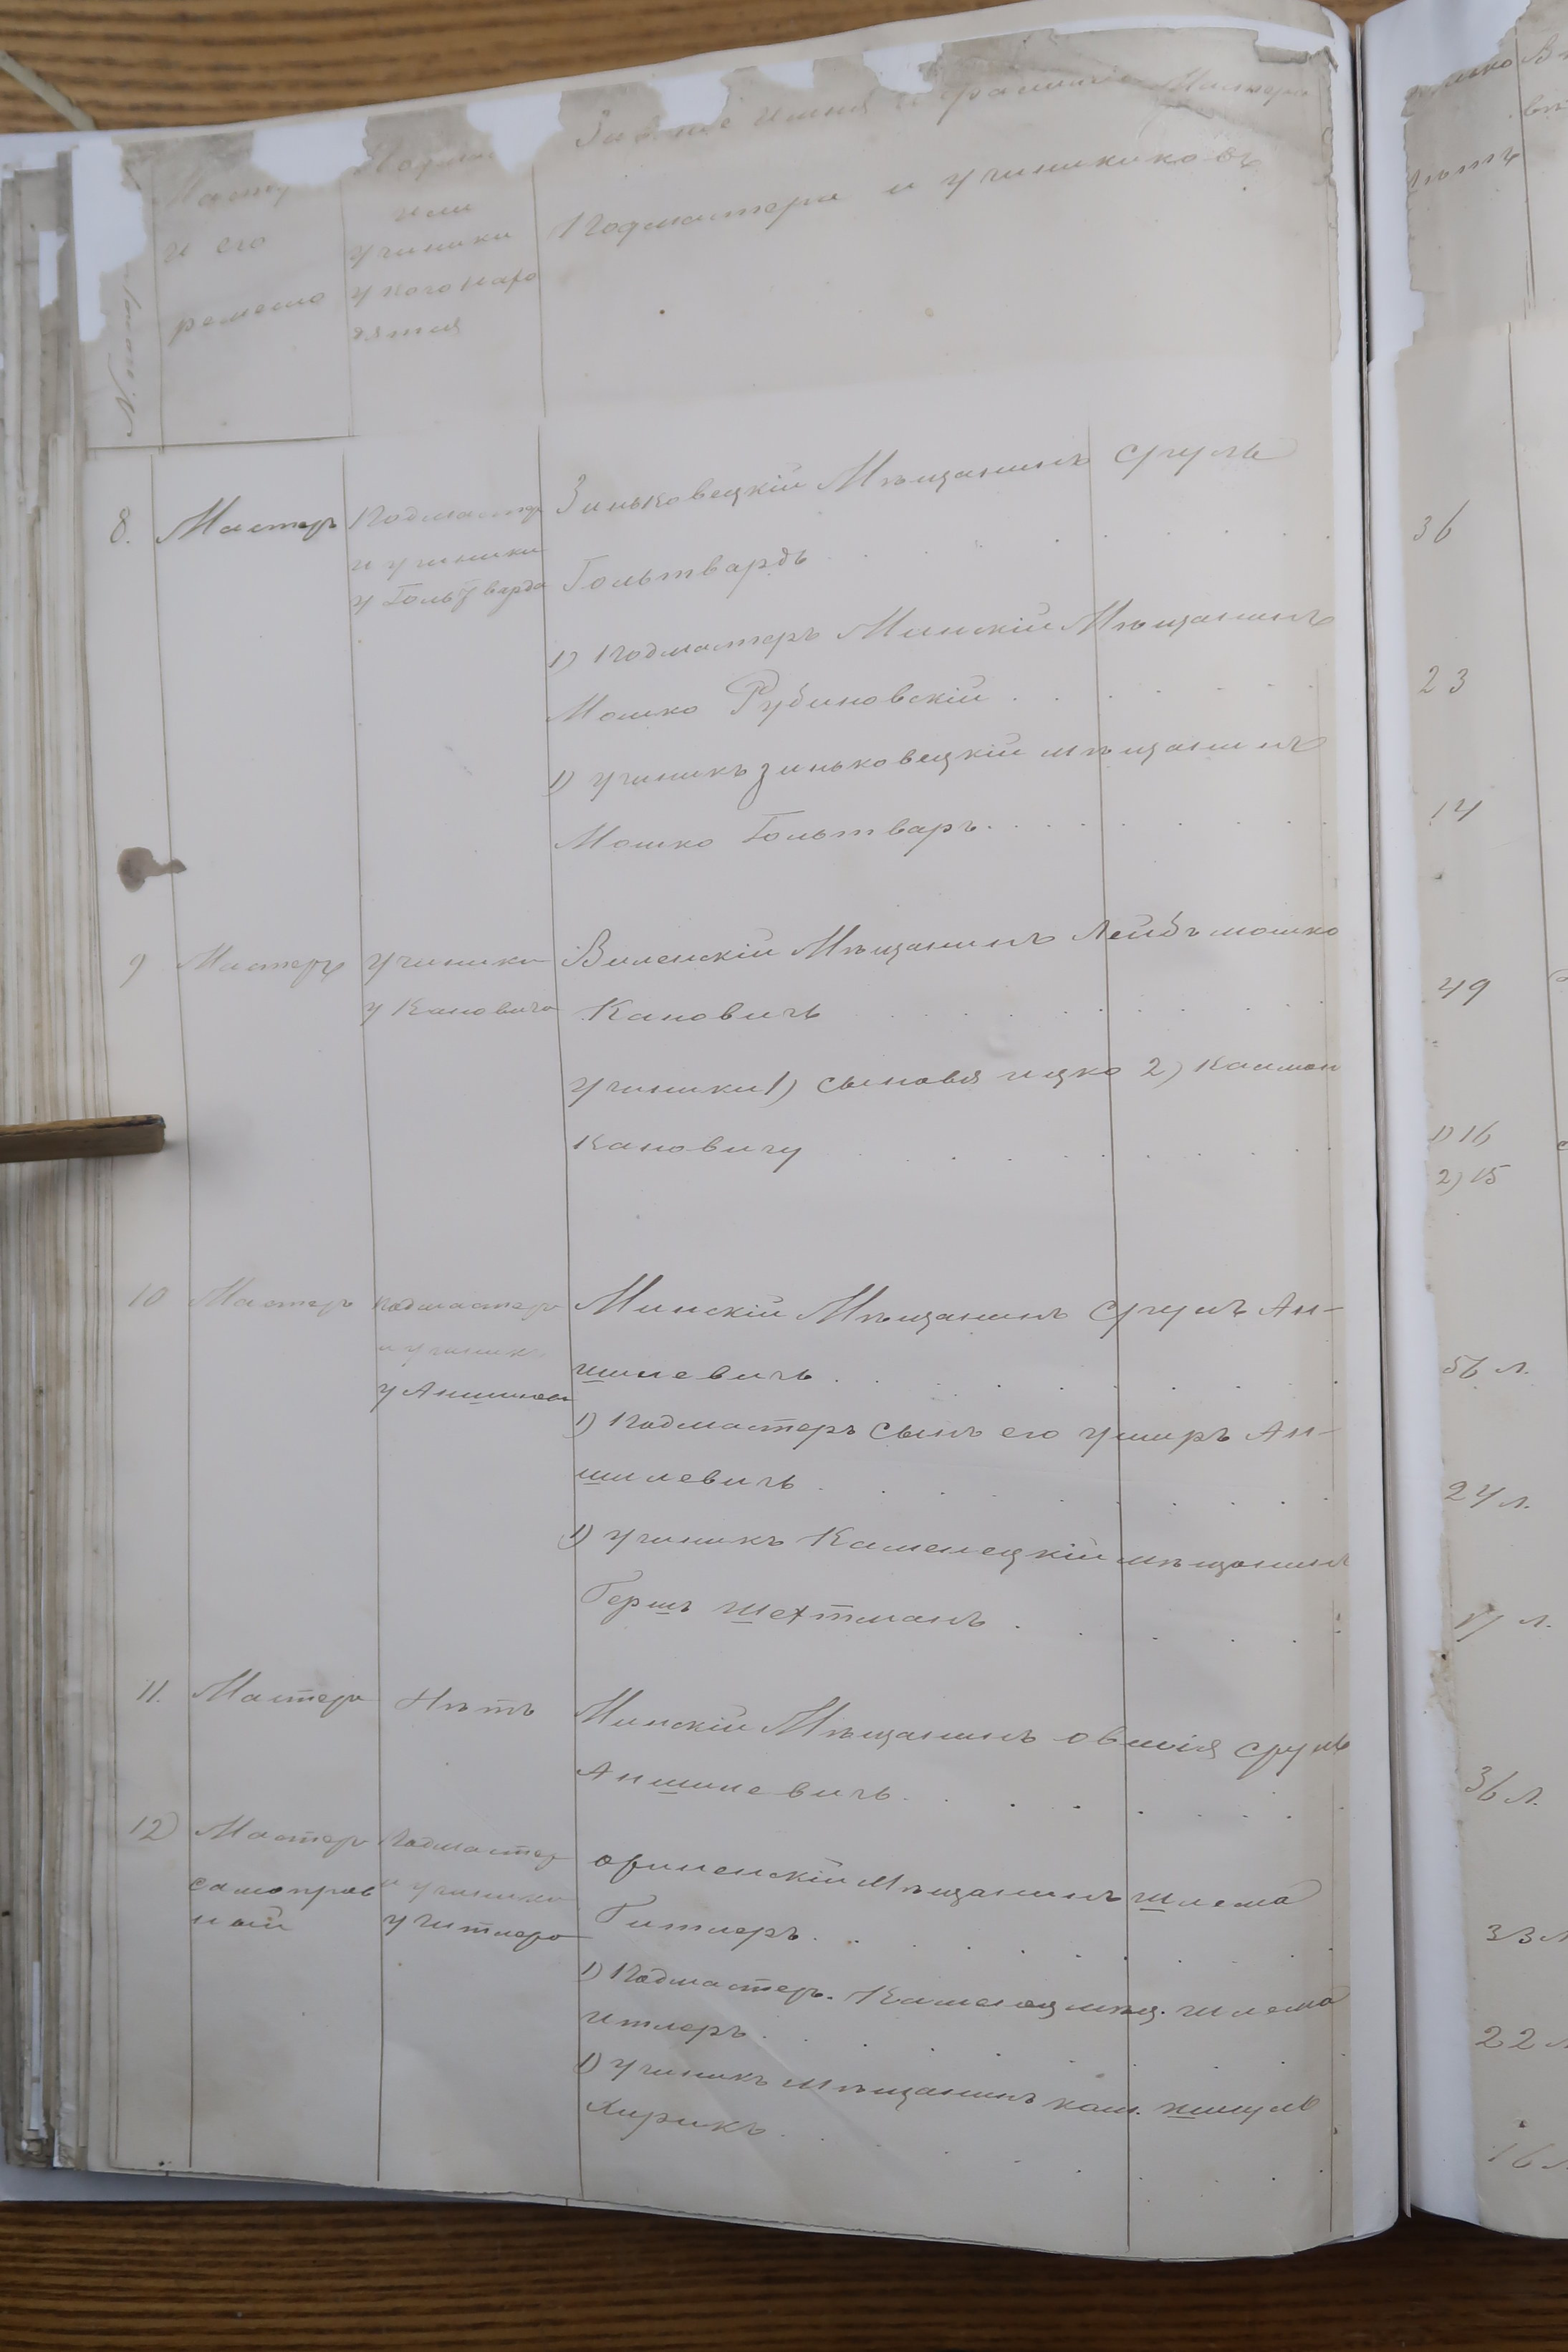 и его
ремесло
или
ученики
у кого нахо
дятся
Званіе имена и фамиліи Мастера
Подмастера и учениковъ
8. Мастеръ
Подмастер
и ученики
у Гольтварда
Зиньковецкій Мѣщанинъ Сруль
Гольтвардъ
1) Подмастеръ Минскій Мѣщанинъ
Мошко Рубиновскій
1) ученикъ зиньковецкій мѣщанинъ
Мошко Гольтваръ
9 Мастеръ
ученики
у Кановича
Виленскій Мѣщанинъ Лейбъ мошко
Кановичъ
ученики 1) сыновя ицко 2) Калман
Кановичу
10 Мастеръ
подмастеръ
и ученикъ
у Аншилев
Минскій Мѣщанинъ Сруль Ан-
шилевичъ
1) Подмастеръ сынъ его уширъ Ан-
шилевичъ
1) ученикъ Каменецкій мѣщанинъ
Гершъ Шехтманъ
11. Мастеръ
Нѣтъ
Минскій Мѣщанинъ овшія сруль
Аншилевичъ
12) Мастеръ
самоправ
ной
Подмастер
и ученики
у Читлера
Мѣщанинъ шлема
Гитлеръ
1) Подмастеръ. Каменец мѣщ. шлема
итлеръ
1) ученикъ мѣщанинъ кам. шмуль
Хирикъ
36
23
14
49
1) 16
2) 15
56 л.
24 л.
17 л.
36 л.
33 л
22 л
16 л